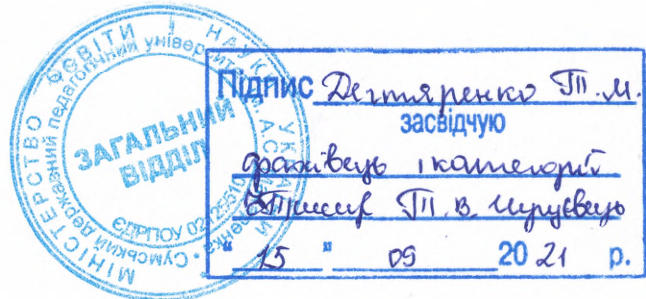 МІНІСТЕРСТВО ОСВІТИ І НАУКИ УКРАЇНИ
Сумський державний педагогічний університет
ЗАГАЛЬНИЙ
ВІДДІЛ
ЄДРПОУ
Підпис Дегтяренко Т.М.
засвідчую
фахівець І категорії
Т.В.
"15" 09 2021 р.